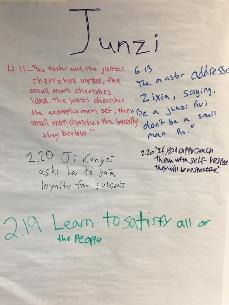 Junzi
4.11 "The Master said, the junzi
cherishes virtue, the
small man cherishes
land. The junzi cherishes
the examples men set, the
small man cherishes the bounty
they bestow."
6.13
The master addressed
Zixia, saying,
Be a junzi Ru;
don't be a small
man Ru."
2.20 Ji Kangzi
asks how to gain
loyalty from subjects
2.20 "If you approach
them with self-respect
they will be respectful"
2.19 Learn to satisfy all of
the people